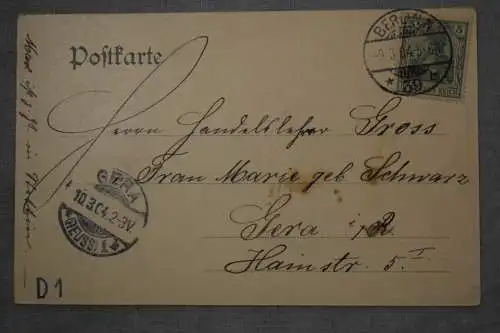 Postkarte
BERLIN
9.3.04.5-6N.
* 39 b
5
REICH
Herrn Handelslehrer Gross
Frau Marie geb Schwarz
Gera i/R
Hainstr. 5 I
GERA
10.3.04.2-3V.
*(REUSS) 1.
in
D1